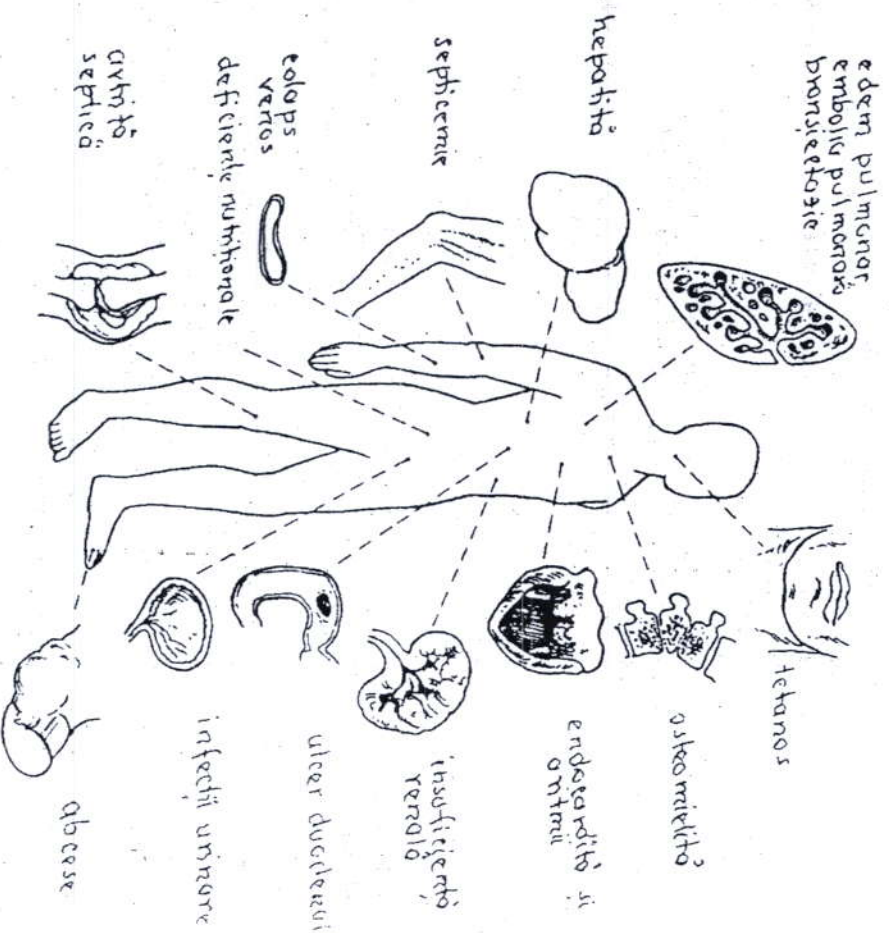 edem pulmonar
embolie pulmonară
bronșiectazie
hepatită
septicemie
colaps
venos
deficiențe nutriționale
artrită
septică
tetanos
osteomielită
endocardită și
aritmii
insuficiență
renală
ulcer duodenal
infecții urinare
abcese